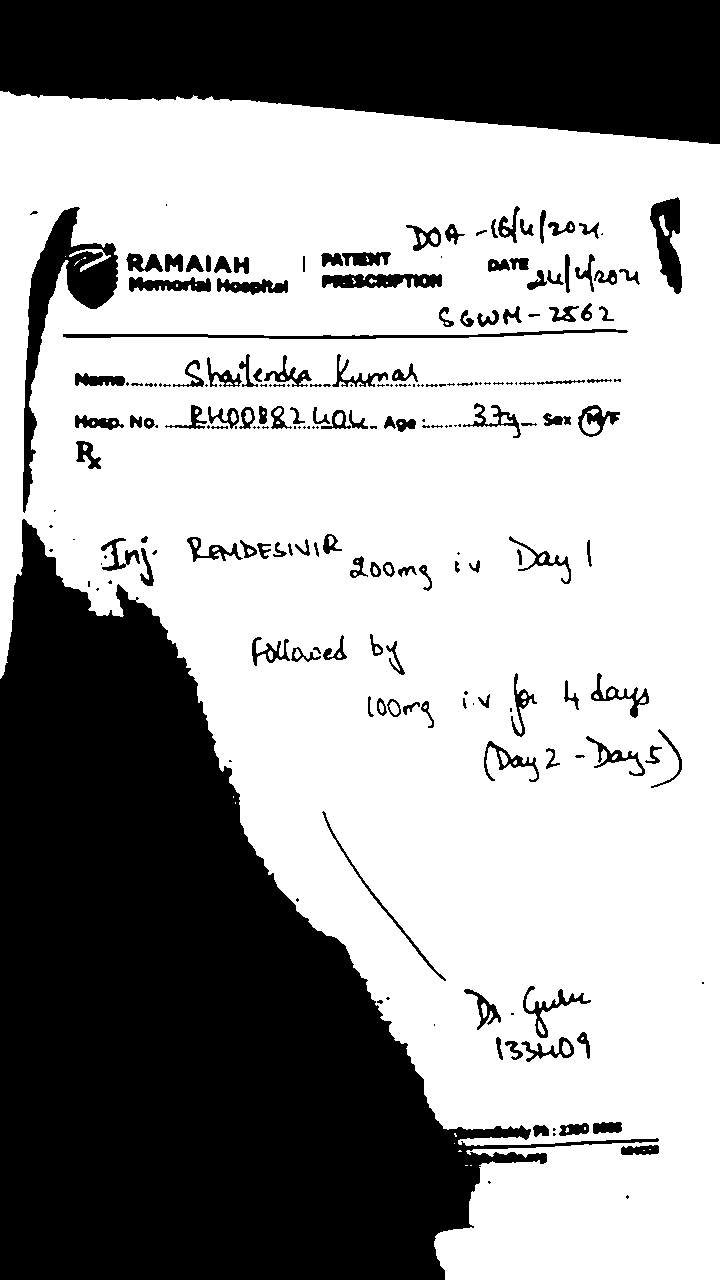 DOA - 16/4/2021
RAMAIAH
Memorial Hospital
PATIENT
PRESCRIPTION
DATE 24/4/2021
SGWM - 2562
Name Shailendra Kumar
Hosp. No. RH00882404 Age: 37y Sex M/F
Rx
Inj. REMDESIVIR 200mg i.v Day 1
Followed by
100mg i.v for 4 days
(Day 2 - Day 5)
Dr.
133409
Immediately Ph : 2360